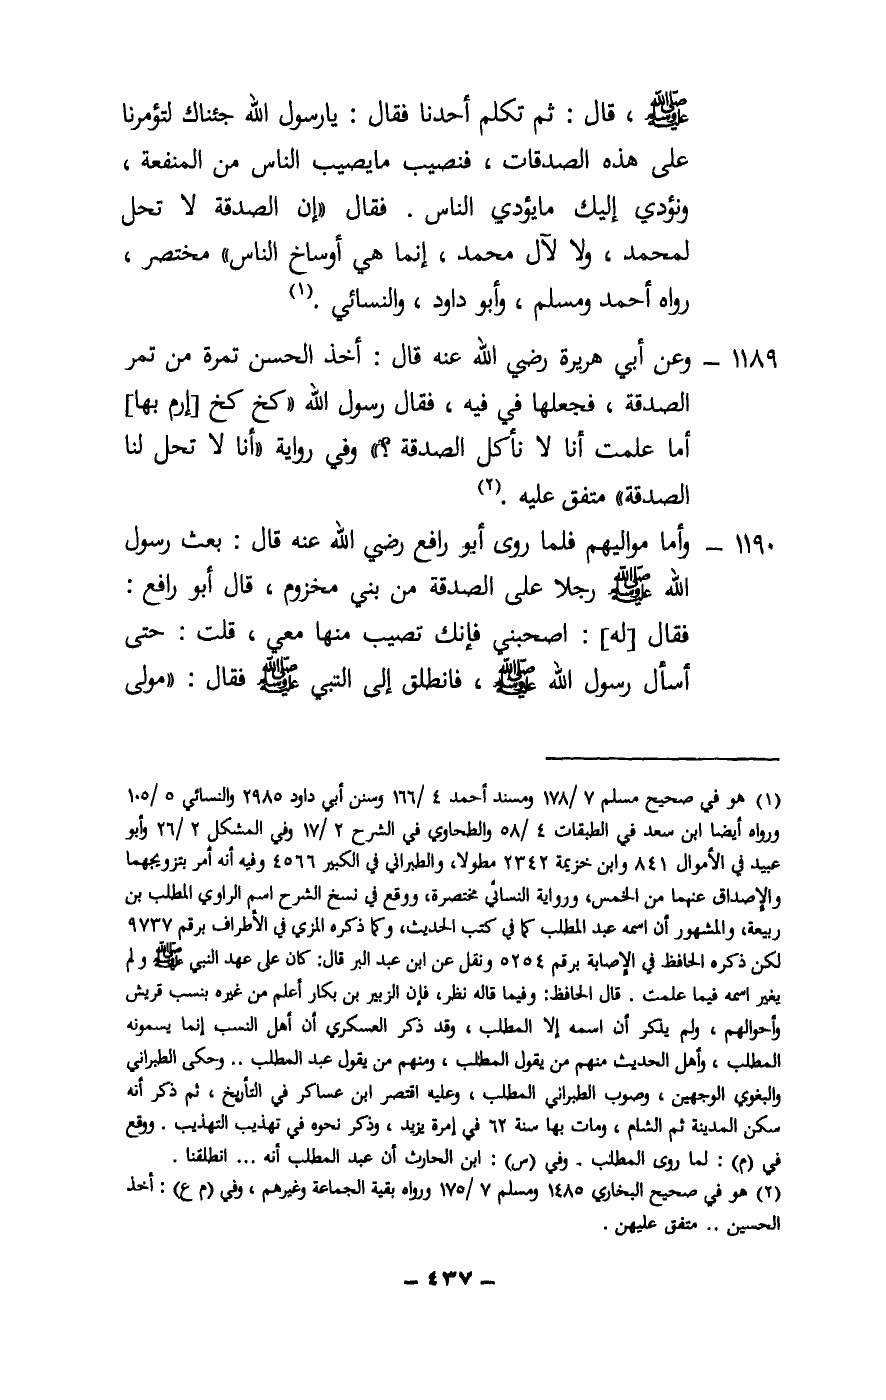 ﷺ ، قال : ثم تكلم أحدنا فقال : يارسول الله جئناك لتؤمرنا
على هذه الصدقات ، فنصيب مايصيب الناس من المنفعة ،
ونؤدي إليك مايؤدي الناس . فقال «إن الصدقة لا تحل
لمحمد ، ولا لآل محمد ، إنما هي أوساخ الناس» مختصر ،
رواه أحمد ومسلم ، وأبو داود ، والنسائي .(١)
١١٨٩ – وعن أبي هريرة رضي الله عنه قال : أخذ الحسن تمرة من تمر
الصدقة ، فجعلها في فيه ، فقال رسول الله «كخ كخ [إرم بها]
أما علمت أنا لا نأكل الصدقة ؟» وفي رواية «أنا لا تحل لنا
الصدقة» متفق عليه .(٢)
١١٩٠ – وأما مواليهم فلما روى أبو رافع رضي الله عنه قال : بعث رسول
الله ﷺ رجلا على الصدقة من بني مخزوم ، قال أبو رافع :
فقال [له] : اصحبني فإنك تصيب منها معي ، قلت : حتى
أسأل رسول الله ﷺ ، فانطلق إلى النبي ﷺ فقال : «مولى
(١) هو في صحيح مسلم ٧ /١٧٨ ومسند أحمد ٤ /١٦٦ وسنن أبي داود ٢٩٨٥ والنسائي ٥ /١٠٥
ورواه أيضا ابن سعد في الطبقات ٤ /٥٨ والطحاوي في الشرح ٢ /١٧ وفي المشكل ٢ /٢٦ وأبو
عبيد في الأموال ٨٤١ وابن خزيمة ٢٣٤٢ مطولا، والطبراني في الكبير ٤٥٦٦ وفيه أنه أمر بتزويجهما
والإصداق عنهما من الخمس، ورواية النسائي مختصرة، ووقع في نسخ الشرح اسم الراوي المطلب بن
ربيعة، والمشهور أن اسمه عبد المطلب كما في كتب الحديث، وكما ذكره المزي في الأطراف برقم ٩٧٣٧
لكن ذكره الحافظ في الإصابة برقم ٥٢٥٤ ونقل عن ابن عبد البر قال: كان على عهد النبي ﷺ ولم
يغير اسمه فيما علمت . قال الحافظ: وفيما قاله نظر، فإن الزبير بن بكار أعلم من غيره بنسب قريش
وأحوالهم ، ولم يذكر أن اسمه إلا المطلب ، وقد ذكر العسكري أن أهل النسب إنما يسمونه
المطلب ، وأهل الحديث منهم من يقول المطلب ، ومنهم من يقول عبد المطلب .. وحكى الطبراني
والبغوي الوجهين ، وصوب الطبراني المطلب ، وعليه اقتصر ابن عساكر في التأريخ ، ثم ذكر أنه
سكن المدينة ثم الشام ، ومات بها سنة ٦٢ في إمرة يزيد ، وذكر نحوه في تهذيب التهذيب . ووقع
في (م) : لما روى المطلب . وفي (س) : ابن الحارث أن عبد المطلب أنه ... انطلقنا .
(٢) هو في صحيح البخاري ١٤٨٥ ومسلم ٧ /١٧٥ ورواه بقية الجماعة وغيرهم ، وفي (م ع) : أخذ
الحسين .. متفق عليهن .
– ٤٣٧ –